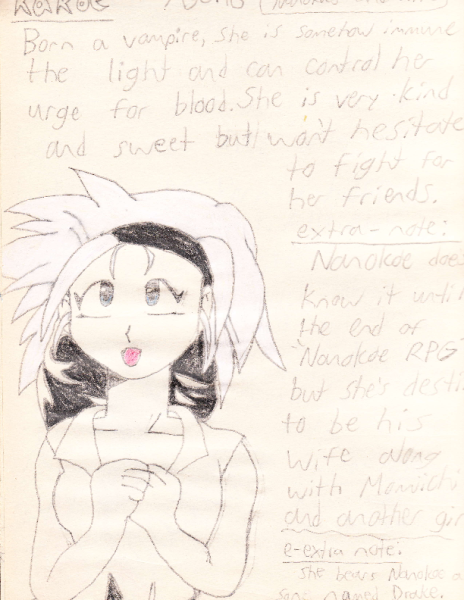 Born a vampire, she is somehow immune
the light and can control her
urge for blood. She is very kind
and sweet but won't hesitate
to fight for
her friends.
extra-note:
Nanokoe does
know it until
the end of
"Nanokoe RPG"
but she's desti
to be his
wife along
with
and another gir
e-extra note:
she bears Nanokoe a
son named Drake.